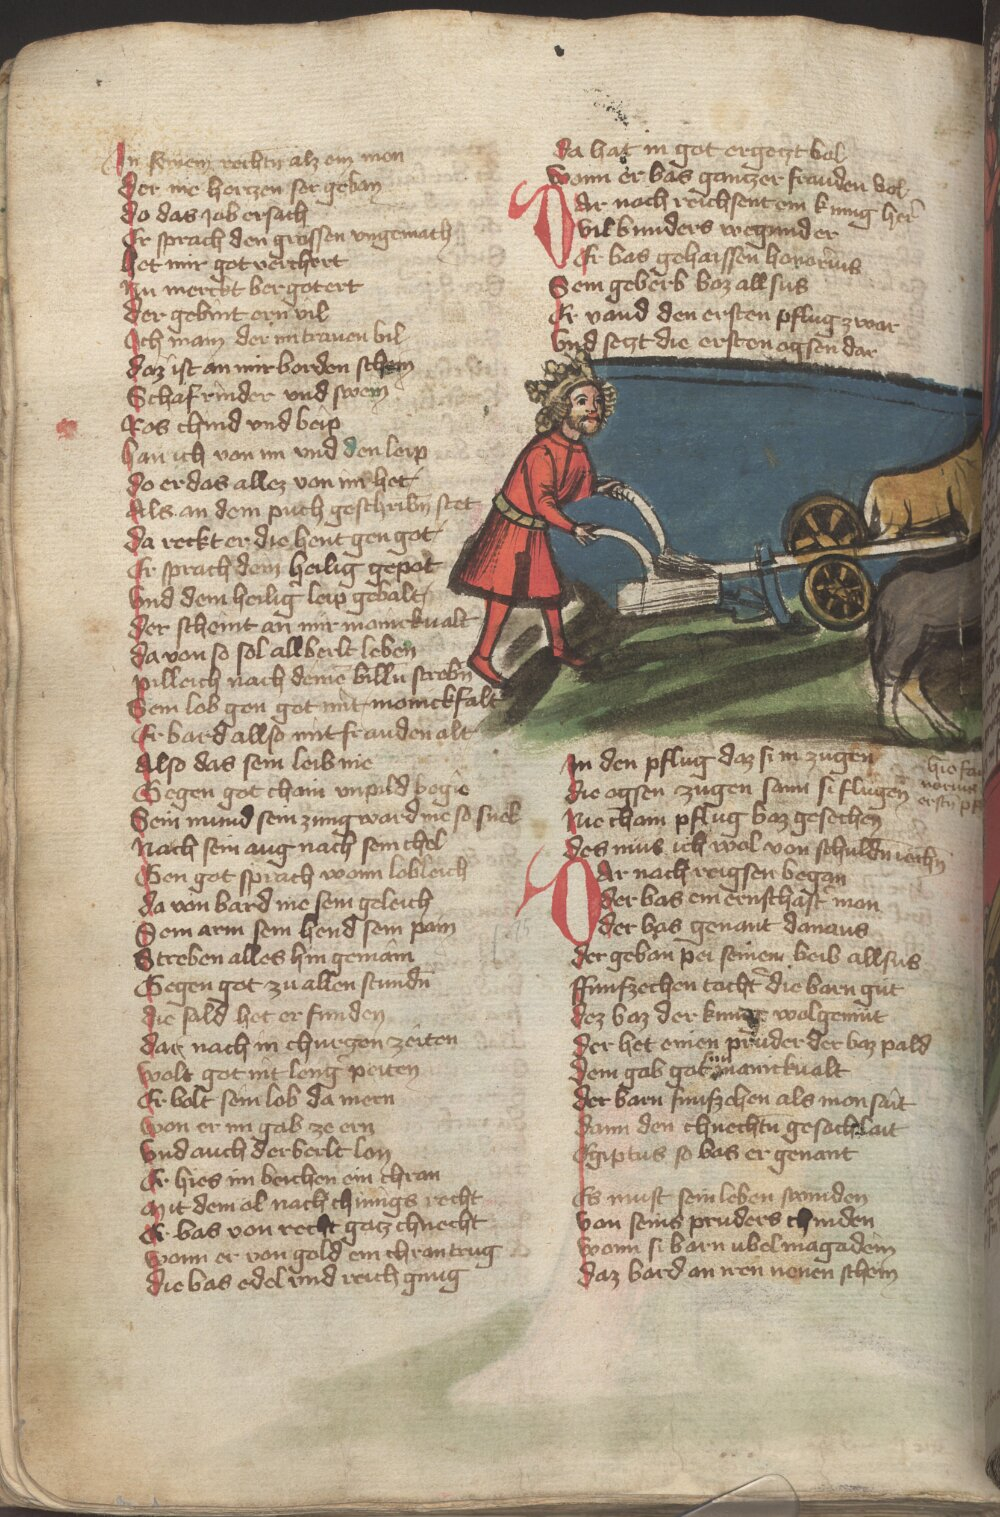 In seinem rechtn alz ein mon
Der nie hertzen ser geban
Do das Job ersach
Er sprach den grossen ungemach
Het mir got verchert
Nu merckt ber gotert
Der gebint ern vil
Och mam der im trauen bil
Daz ist an mir borden schein
Schaf rinder und swein
Ros chind und beip
Han ich von im und den leip
Do er das allez von im het
Als an dem puch geschribn stet
Da reckt er die hent gen got
Er sprach dem heilig gepot
Und dem heilig leip gebalt
Der scheint an mir manickualt
Da von so sol all berlt leben
Pilleich nach deine billn strebn
Sein lob gen got mit manickfalt
Er bard allso mit frauden alt
Also das sein leib nie
Gegen got chain unpild begie
Sein mund sein zung ward nie so snel
Nach sein aug nach sein chel
Gen got sprach wann lobleich
Da von bard nie sein geleich
Sein arm sein hend sein pain
Streben alles hin gemain
Gegen got zu allen stundn
Die sald het er funden
Dar nach in churzen zeiten
Wolt got nit leng peiten
Er bolt sein lob da mern
Won er im gab ze ern
Und auch der berlt lon
Er hies im beichen ein chran
Mit dem ol nach chunigs recht
Er bas von recht gotz chnecht
Wann er von gold ein chran trug
Die bas edel und reich gnug
Da hat in got ergetzt bol
Wann er bas gantzer frauden bol
Dar nach reichsent ein kunig her
Vil bunders wegunder
Er bas gehaissen honorius
Sein geberb boz all sus
Er vand den ersten pflug zwar
Und setzt die ersten ogsen dar
In den pflug daz si in zugen
Die ogsen zugen sam si flugen
Nie cham pflug baz gesechen
Des mus ich wol von schuldn iechn
Dar nach reigsen began
Der bas ein ernschaft man
Der bas genant danaus
Der geban pei seinem beib allsus
Funfzechen tocht die barn gut
Dez baz der kunig wolgemut
Der het einen pruder der baz pald
Dem gab got sun manickualt
Der barn funfzehen als mon sait
Dann den chnechtn gesach lait
Egiptus so bas er genant
Es must sein leben swinden
Von seins pruders chinden
Wann si barn ubel magadein
Daz bard an iren nenen schein